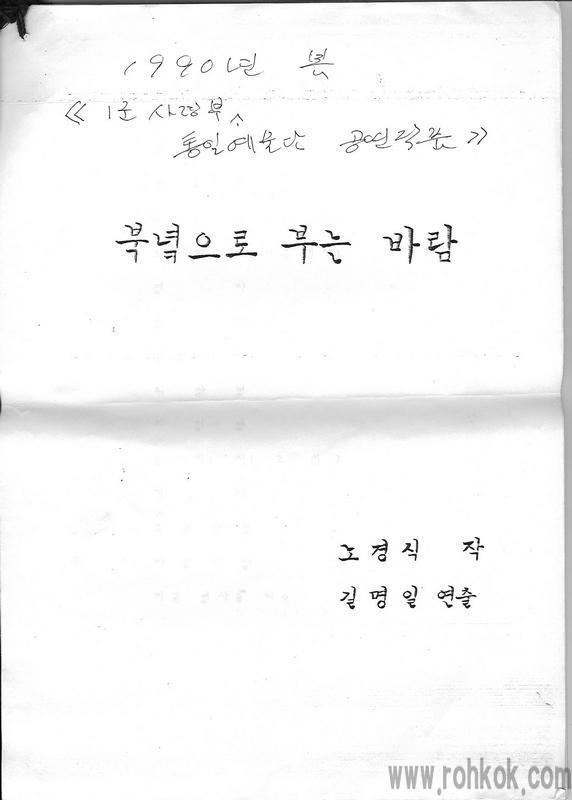 1990년 봄
《1군 사령부
통일예술단 공연작품》
북녘으로 부는 바람
노경식 작
길명일 연출
www.rohkok.com